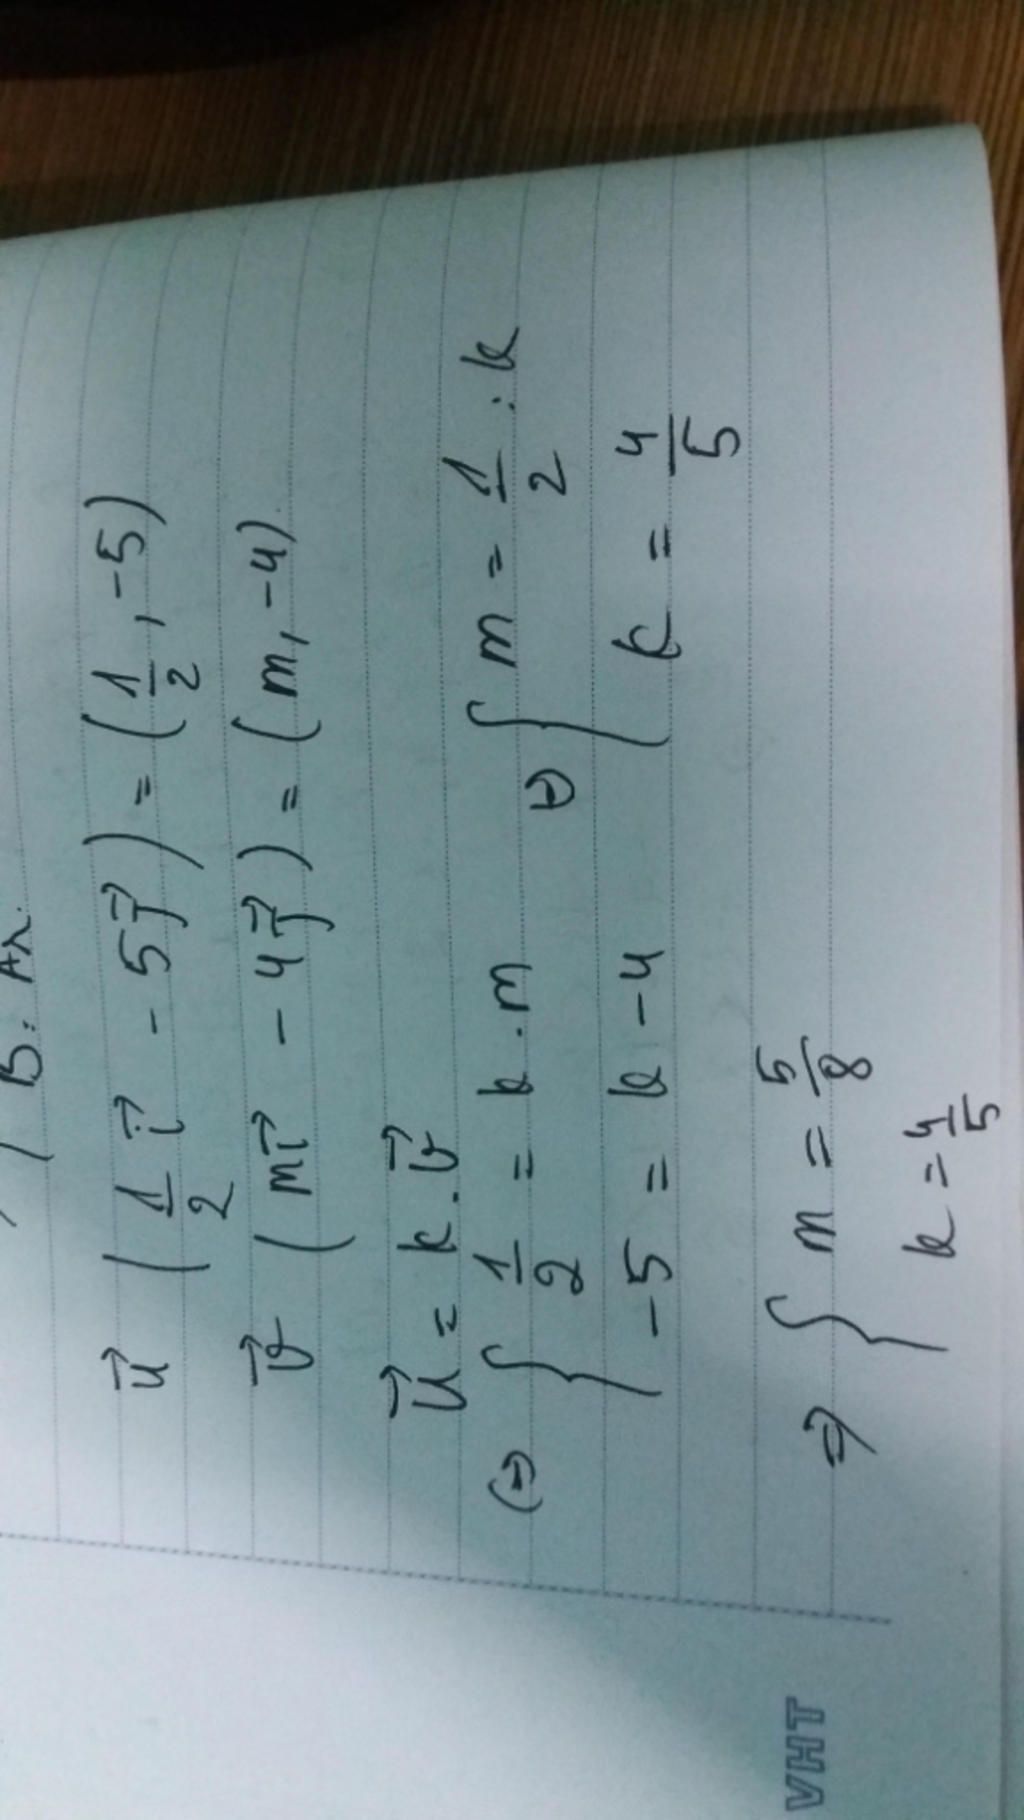 B: Ax.
u⃗ (1/2 i⃗ - 5j⃗) = (1/2, -5)
v⃗ (mi⃗ - 4j⃗) = (m, -4)
u⃗ = k . v⃗
(=) { 1/2 = k . m ⇔ { m = 1/2 : k
-5 = k - 4 k = 4/5
⇒ { m = 5/8
k = 4/5
VHT